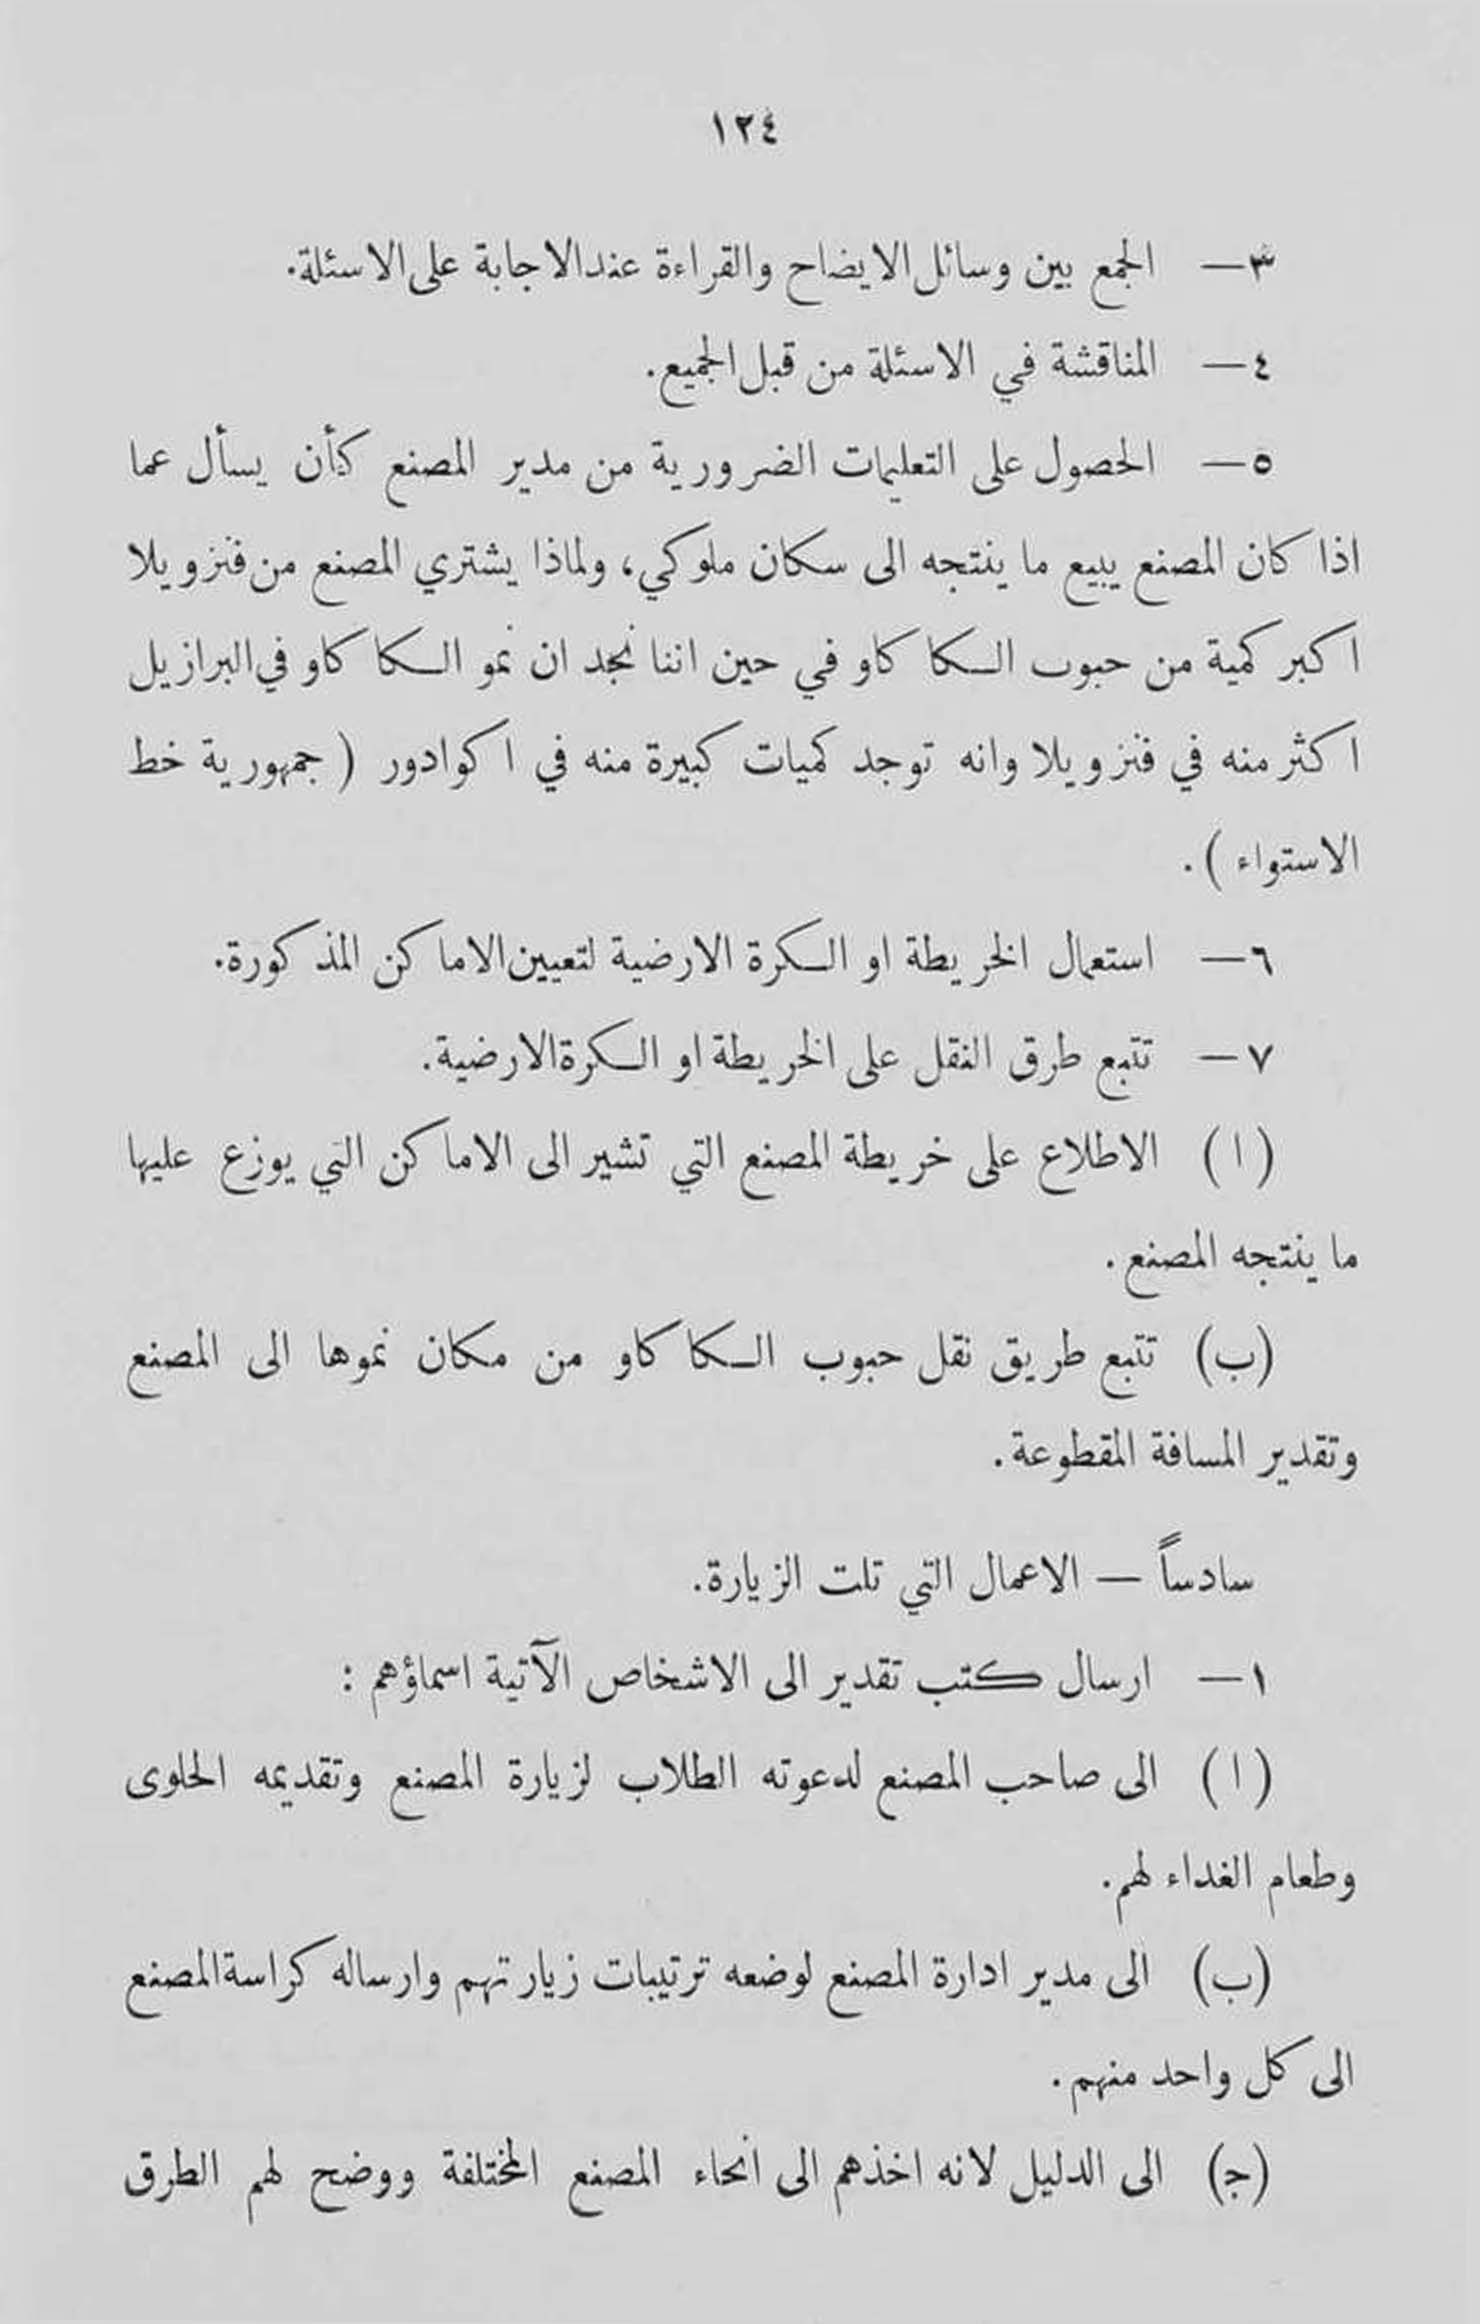 ١٢٤
٣— الجمع بين وسائل الايضاح والقراءة عند الاجابة على الاسئلة.
٤— المناقشة في الاسئلة من قبل الجميع.
٥— الحصول على التعليمات الضرورية من مدير المصنع كأن يسأل عما
اذا كان المصنع يبيع ما ينتجه الى سكان ملوكي، ولماذا يشتري المصنع من فنزويلا
اكبر كمية من حبوب الكاكاو في حين اننا نجد ان نمو الكاكاو في البرازيل
اكثر منه في فنزويلا وانه توجد كميات كبيرة منه في اكوادور ( جمهورية خط
الاستواء ) .
٦— استعمال الخريطة او الكرة الارضية لتعيين الاماكن المذكورة.
٧— تتبع طرق النقل على الخريطة او الكرة الارضية.
( ا ) الاطلاع على خريطة المصنع التي تشير الى الاماكن التي يوزع عليها
ما ينتجه المصنع .
(ب) تتبع طريق نقل حبوب الكاكاو من مكان نموها الى المصنع
وتقدير المسافة المقطوعة .
سادساً — الاعمال التي تلت الزيارة.
١— ارسال كتب تقدير الى الاشخاص الآتية اسماؤهم :
( ا ) الى صاحب المصنع لدعوته الطلاب لزيارة المصنع وتقديمه الحلوى
وطعام الغداء لهم.
(ب) الى مدير ادارة المصنع لوضعه ترتيبات زيارتهم وارساله كراسة المصنع
الى كل واحد منهم .
(ج) الى الدليل لانه اخذهم الى انحاء المصنع المختلفة ووضح لهم الطرق